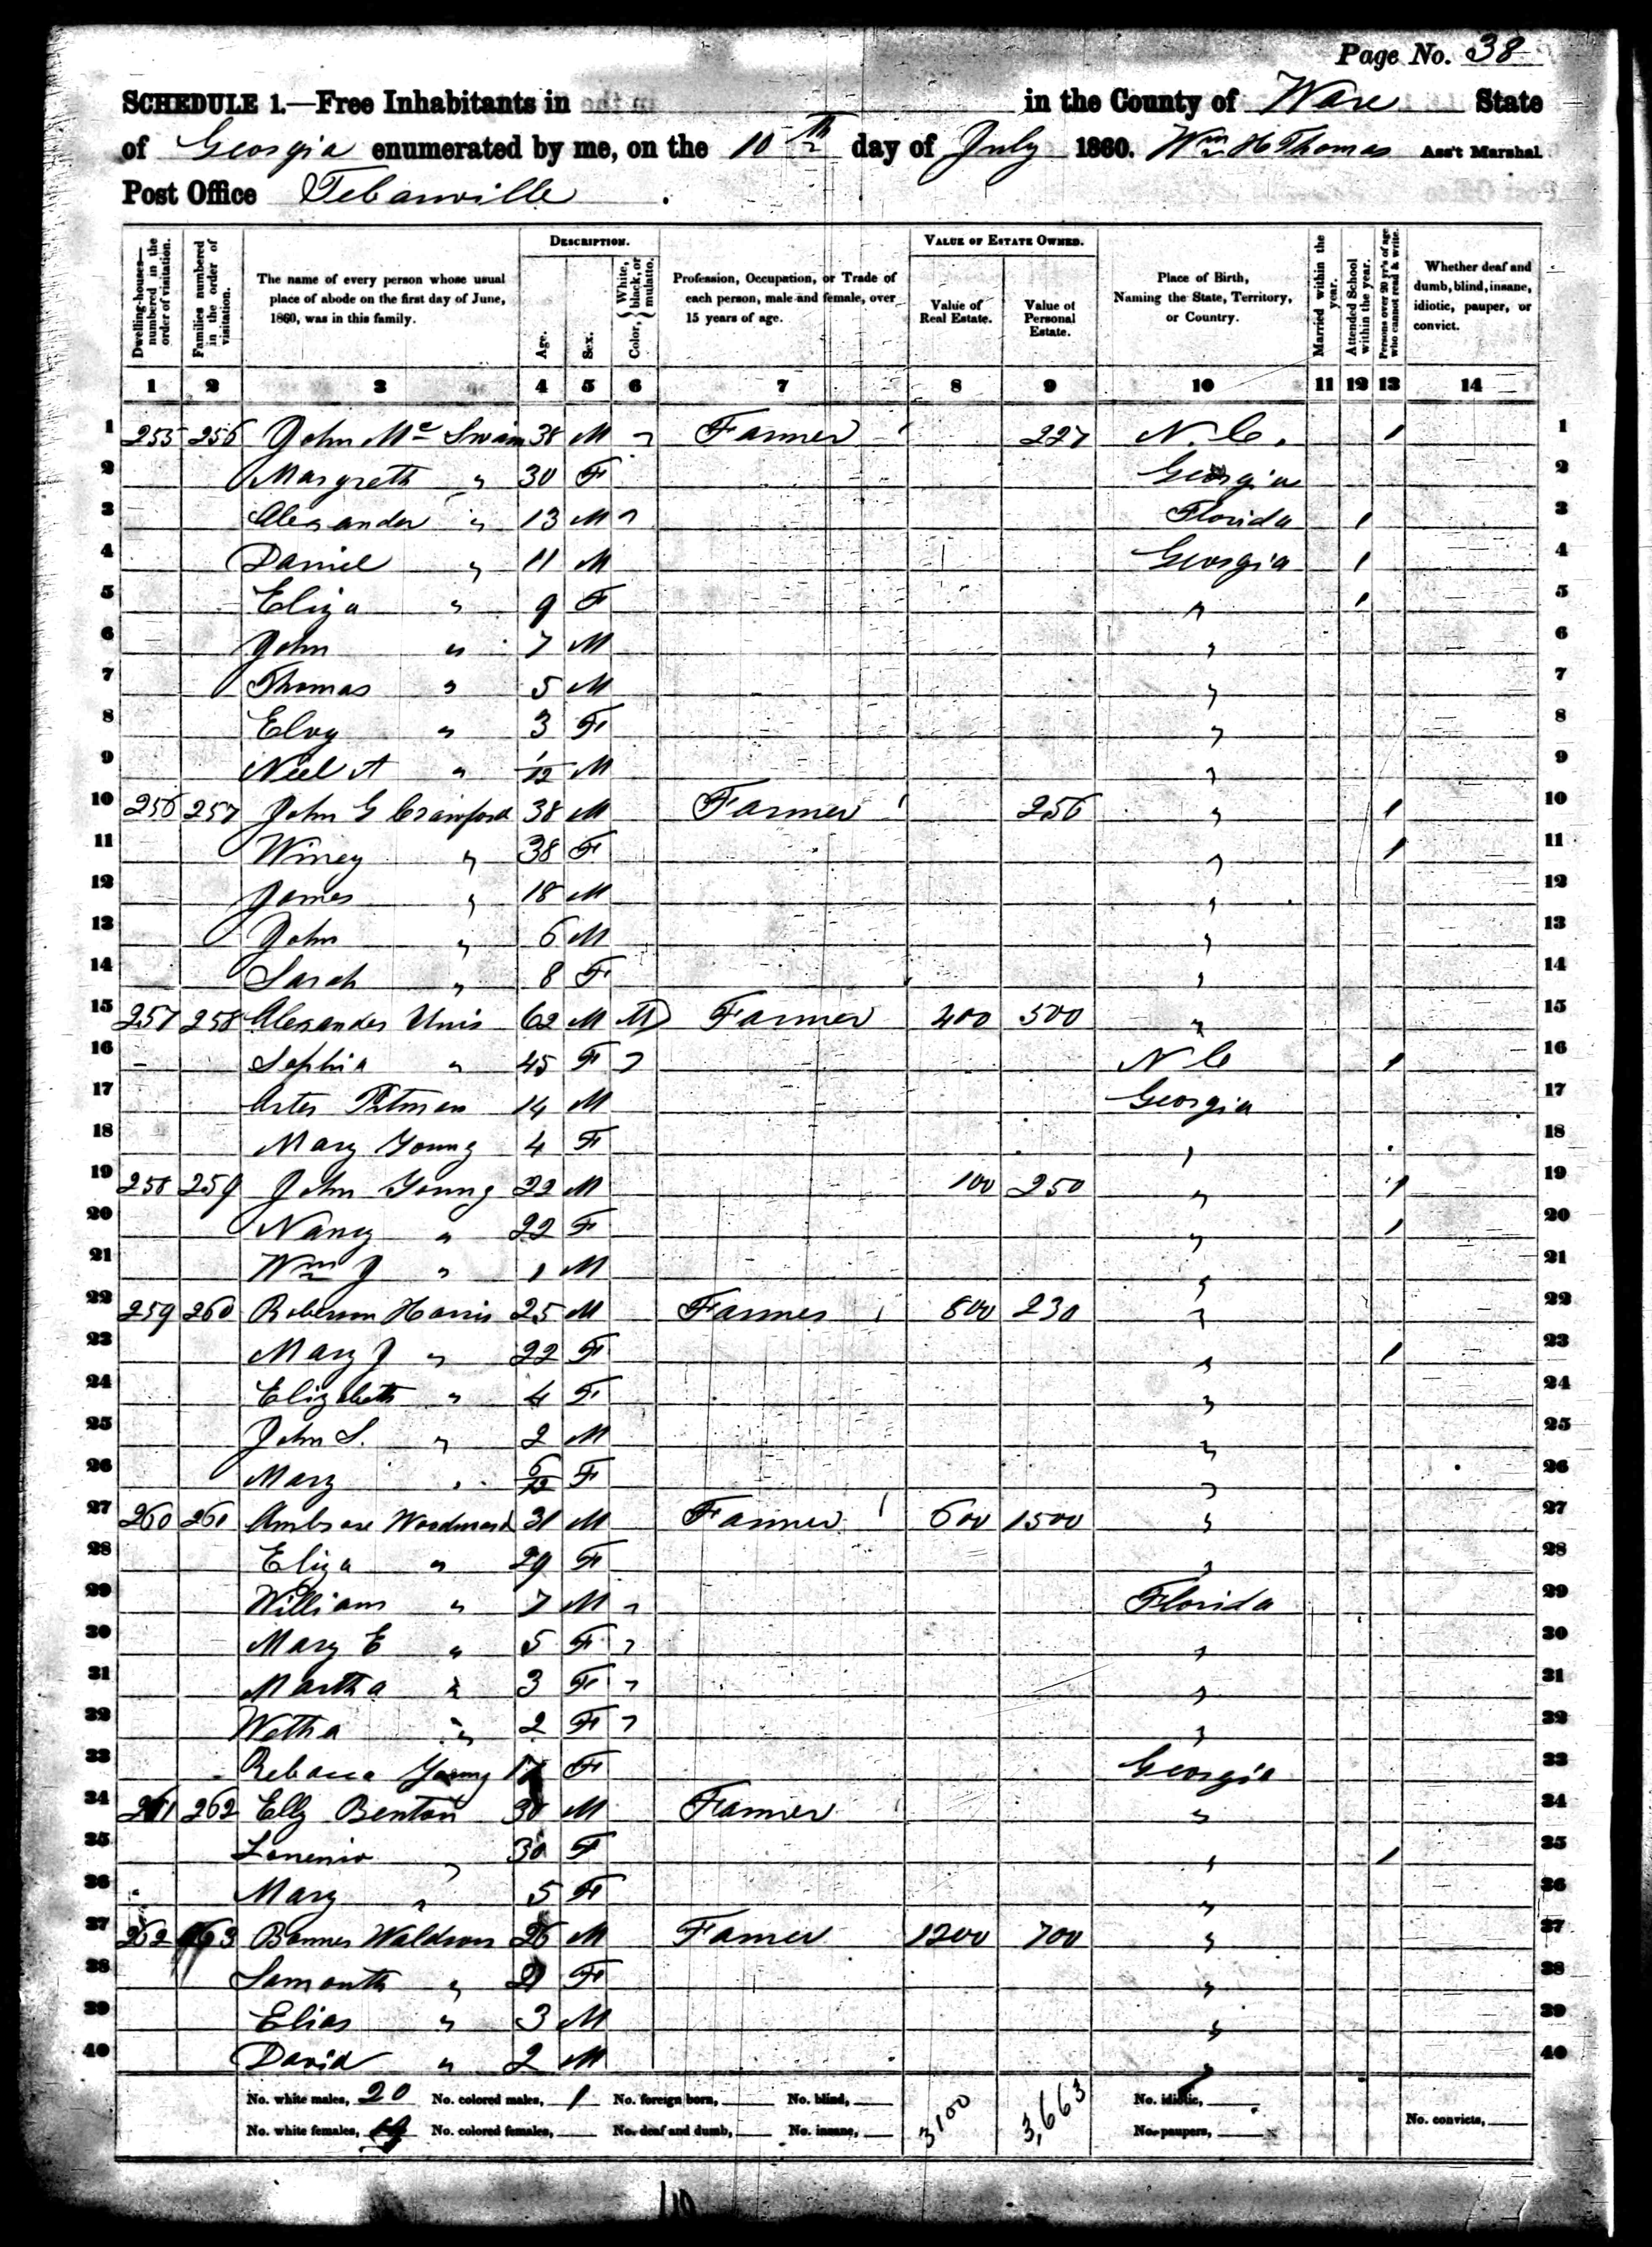 Page No. 38
SCHEDULE 1.—Free Inhabitants in in the County of Ware State
of Georgia enumerated by me, on the 10th day of July 1860. Wm H Thomas Ass't Marshal
Post Office Tebauville
DESCRIPTION. VALUE OF ESTATE OWNED.
Dwelling-houses—numbered in the order of visitation. Families numbered in the order of visitation. The name of every person whose usual place of abode on the first day of June, 1860, was in this family. Age. Sex. Color, {White, black, or mulatto. Profession, Occupation, or Trade of each person, male and female, over 15 years of age. Value of Real Estate. Value of Personal Estate. Place of Birth, Naming the State, Territory, or Country. Married within the year. Attended School within the year. Persons over 20 y'rs of age who cannot read & write. Whether deaf and dumb, blind, insane, idiotic, pauper, or convict.
1 2 3 4 5 6 7 8 9 10 11 12 13 14
1 255 256 John Mc Swain 38 M Farmer 227 N. C. / 1
2 Margreth " 30 F Georgia 2
3 Alexander " 13 M Florida / 3
4 Daniel " 11 M Georgia / 4
5 Eliza " 9 F " / 5
6 John " 7 M " 6
7 Thomas " 5 M " 7
8 Elvy " 3 F " 8
9 Neel A " 1/12 M " 9
10 256 257 John G Crawford 38 M Farmer 256 " / 10
11 Winey " 38 F " / 11
12 James " 18 M " 12
13 John " 6 M " 13
14 Sarah " 8 F " 14
15 257 258 Alexander Unis 62 M M Farmer 400 500 " 15
16 Sophia " 45 F N C / 16
17 Arter Pitman 14 M Georgia 17
18 Mary Young 4 F " 18
19 258 259 John Young 22 M 100 250 " / 19
20 Nancy " 22 F " / 20
21 Wm J " 1 M " 21
22 259 260 Roberson Harris 25 M Farmer 800 230 " 22
23 Mary J " 22 F " / 23
24 Elizabeth " 4 F " 24
25 John S. " 2 M " 25
26 Mary " 6/12 F " 26
27 260 261 Ambrose Woodward 31 M Farmer 600 1500 " 27
28 Eliza " 29 F " 28
29 William " 7 M Florida 29
30 Mary E " 5 F " 30
31 Martha " 3 F " 31
32 Wetha " 2 F " 32
33 Rebacca Young 17 F Georgia 33
34 261 262 Elly Benton 30 M Farmer " 34
35 30 F " / 35
36 Mary " 5 F " 36
37 262 263 Waldron 26 M Farmer 1200 700 " 37
38 Samanth " 21 F " 38
39 Elias " 3 M " 39
40 David " 2 M " 40
No. white males, 20 No. colored males, 1 No. foreign born, No. blind, 3,100 3,663 No. idiotic,
No. white females, 19 No. colored females, No. deaf and dumb, No. insane, No. paupers, No. convicts,